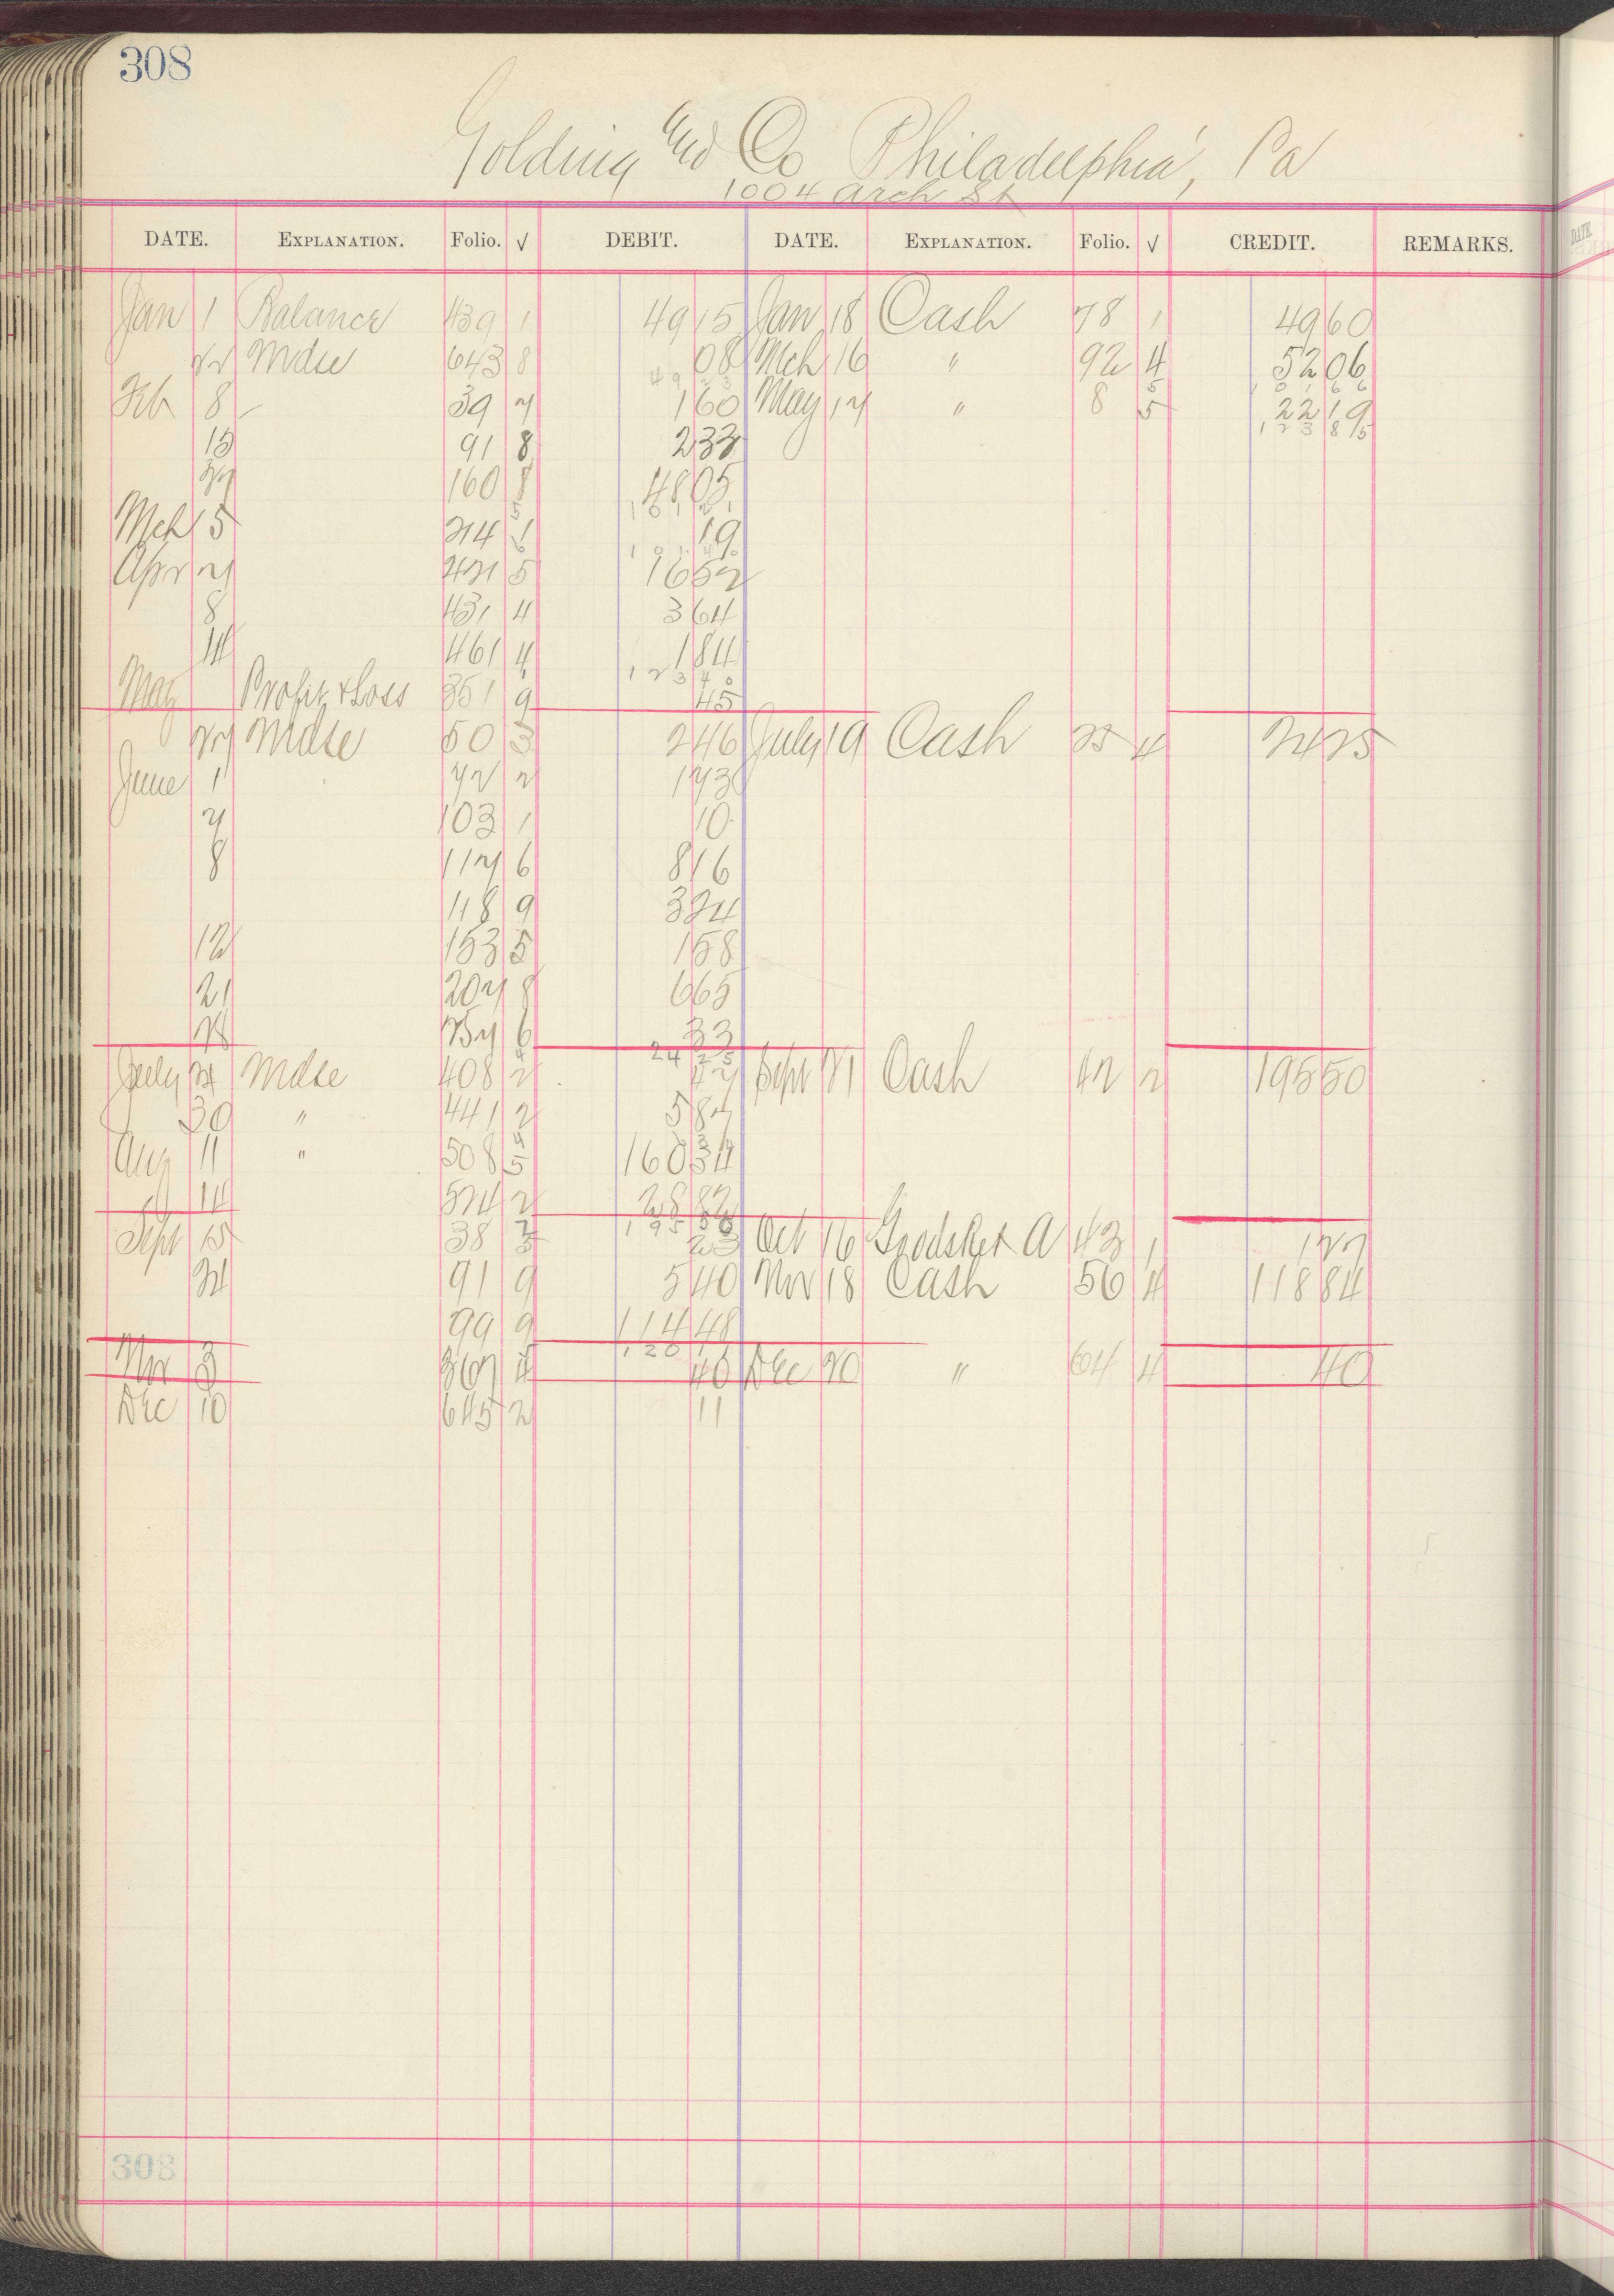 308
Golding and Co Philadelphia, Pa
1004 Arch St
DATE. EXPLANATION. Folio. √ DEBIT. DATE. EXPLANATION. Folio. √ CREDIT. REMARKS.
Jan 1 Balance 439 1 49 15 Jan 18 Cash 78 1 49 60
22 Mdse 643 8 08 Mch 16 " 92 4 52 06
49 23 5 101 66
Feb 8 - 39 7 1 60 May 17 " 8 5 22 19
123 85
15 91 8 2 33
27 160 48 05
5 101 21
Mch 5 214 1 19
6 101 40
Apr 7 421 5 16 52
8 431 4 3 64
14 461 4 1 84
6 123 40
May Profit & Loss 351 9 45
27 Mdse 50 3 2 46 July 19 Cash 25 4 24 25
June 1 72 2 1 73
7 103 1 10
8 117 6 8 16
118 9 3 24
12 153 5 1 58
21 207 8 6 65
28 257 6 33
24 25
July 24 Mdse 408 2 47 Sept 21 Cash 42 2 195 50
30 " 441 2 5 87
Aug 11 " 508 5 160 34
14 524 2 28 82
195 50
Sept 15 38 3 23 Oct 16 A 43 1 1 27
24 91 9 5 40 Nov 18 Cash 56 4 118 84
99 9 114 48
120 11
Nov 3 367 4 40 Dec 20 " 64 4 40
Dec 10 645 2 11
308